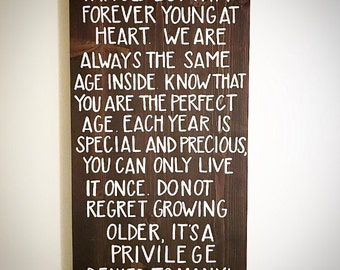 FOREVER YOUNG AT
HEART. WE ARE
ALWAYS THE SAME
AGE INSIDE. KNOW THAT
YOU ARE THE PERFECT
AGE. EACH YEAR IS
SPECIAL AND PRECIOUS,
YOU CAN ONLY LIVE
IT ONCE. DO NOT
REGRET GROWING
OLDER, IT'S A
PRIVILEGE
DENIED TO MANY!